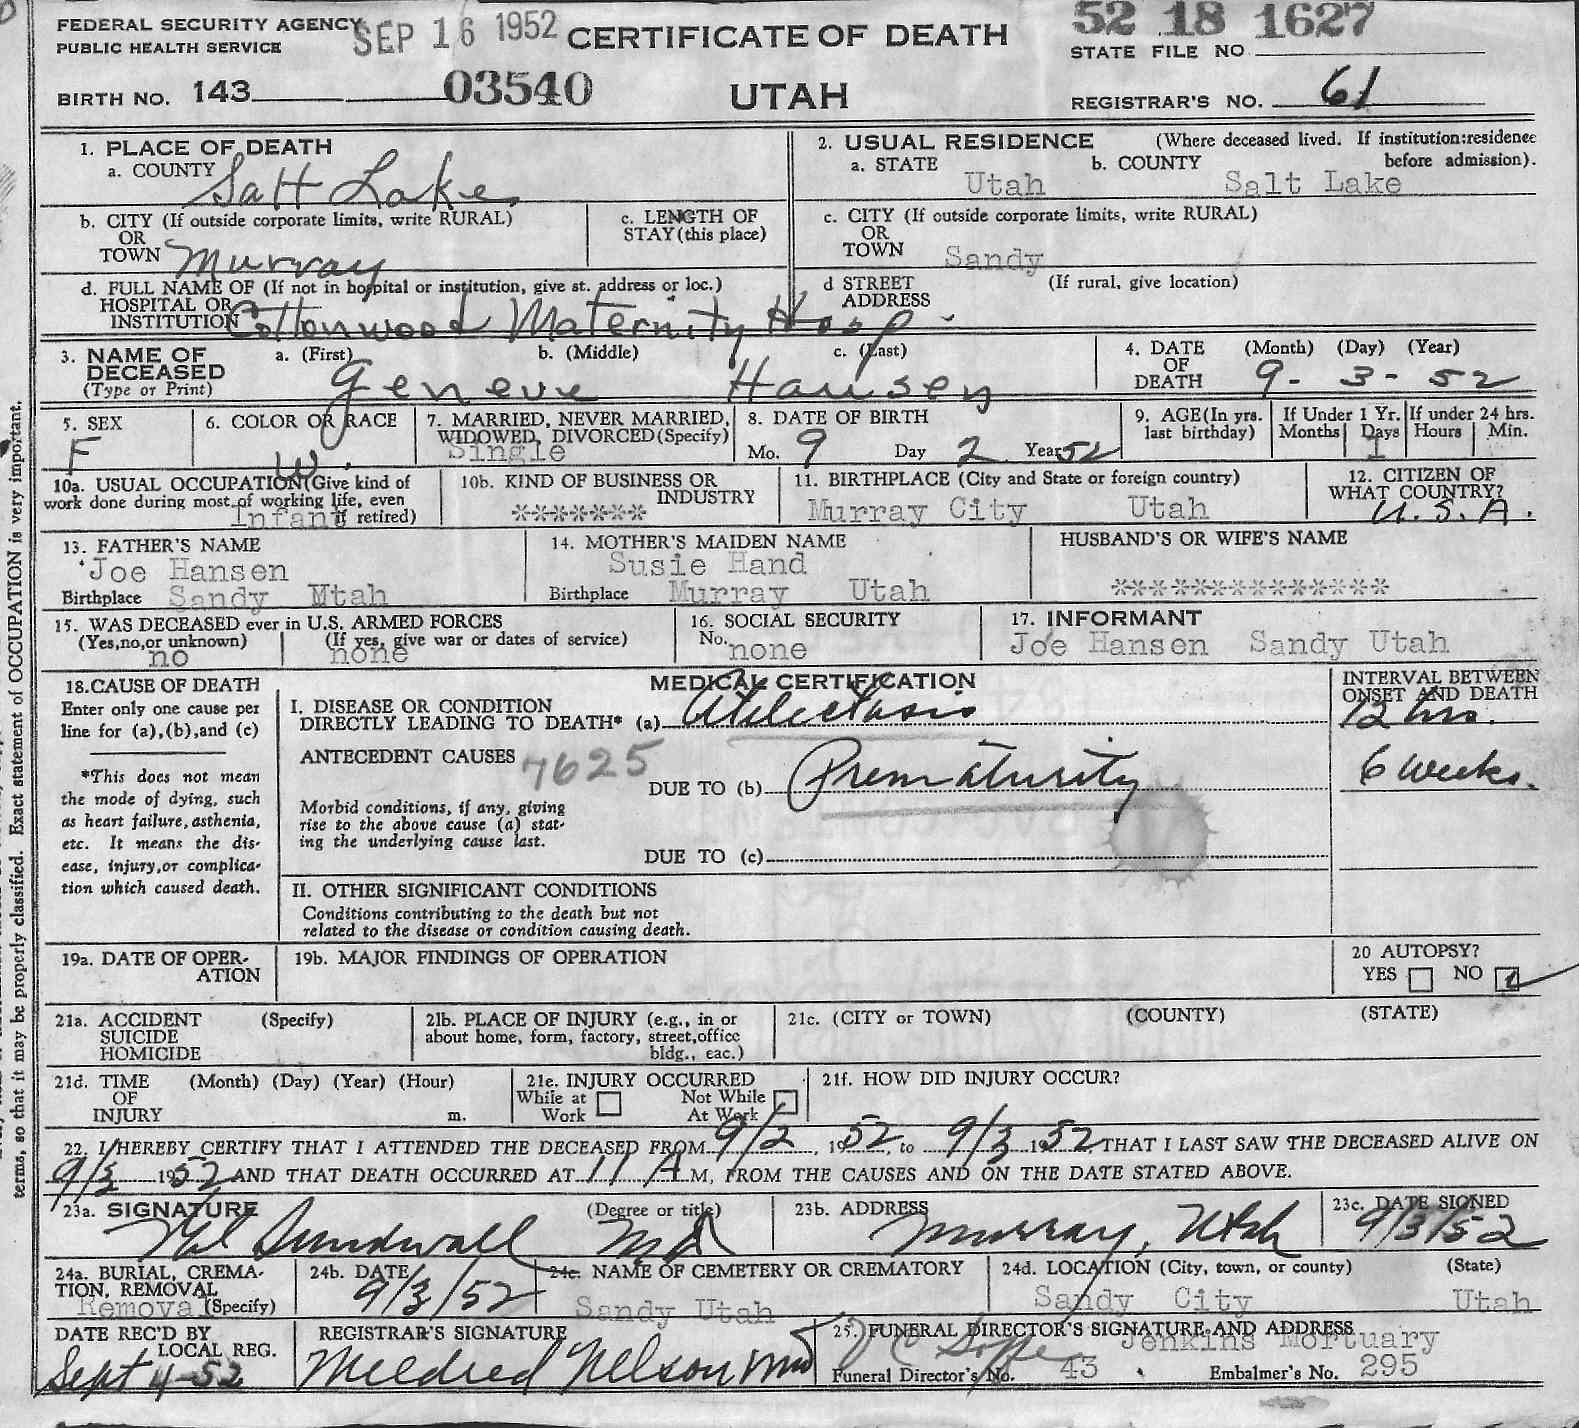 FEDERAL SECURITY AGENCY
PUBLIC HEALTH SERVICE
SEP 16 1952
CERTIFICATE OF DEATH
52 18 1627
STATE FILE NO
BIRTH NO. 143
03540
UTAH
REGISTRAR'S NO. 61
1. PLACE OF DEATH
a. COUNTY Salt Lake
2. USUAL RESIDENCE (Where deceased lived. If institution:residence before admission).
a. STATE Utah b. COUNTY Salt Lake
b. CITY (If outside corporate limits, write RURAL)
OR
TOWN Murray
c. LENGTH OF
STAY (this place)
c. CITY (If outside corporate limits, write RURAL)
OR
TOWN Sandy
d. FULL NAME OF (If not in hospital or institution, give st. address or loc.)
HOSPITAL OR
INSTITUTION Cottonwood Maternity Hosp.
d STREET (If rural, give location)
ADDRESS
3. NAME OF a. (First) b. (Middle) c. (Last)
DECEASED
(Type or Print) Geneve Hansen
4. DATE (Month) (Day) (Year)
OF
DEATH 9-3-52
5. SEX
F
6. COLOR OR RACE
W.
7. MARRIED, NEVER MARRIED,
WIDOWED, DIVORCED (Specify)
Single
8. DATE OF BIRTH
Mo. 9 Day 2 Year 52
9. AGE (In yrs.
last birthday)
If Under 1 Yr.
Months Days
1
If under 24 hrs.
Hours Min.
10a. USUAL OCCUPATION (Give kind of
work done during most of working life, even
if retired)
Infant
10b. KIND OF BUSINESS OR
INDUSTRY
*******
11. BIRTHPLACE (City and State or foreign country)
Murray City Utah
12. CITIZEN OF
WHAT COUNTRY?
U.S.A.
13. FATHER'S NAME
Joe Hansen
Birthplace Sandy Mtah
14. MOTHER'S MAIDEN NAME
Susie Hand
Birthplace Murray Utah
HUSBAND'S OR WIFE'S NAME
**************
15. WAS DECEASED ever in U.S. ARMED FORCES
(Yes,no,or unknown) (If yes, give war or dates of service)
no none
16. SOCIAL SECURITY
No. none
17. INFORMANT
Joe Hansen Sandy Utah
18. CAUSE OF DEATH
Enter only one cause per
line for (a),(b),and (c)
*This does not mean
the mode of dying, such
as heart failure, asthenia,
etc. It means the dis-
ease, injury, or complica-
tion which caused death.
MEDICAL CERTIFICATION
I. DISEASE OR CONDITION
DIRECTLY LEADING TO DEATH* (a) Atelectasis
INTERVAL BETWEEN
ONSET AND DEATH
12 hrs.
ANTECEDENT CAUSES 7625
DUE TO (b) Prematurity 6 Weeks.
Morbid conditions, if any, giving
rise to the above cause (a) stat-
ing the underlying cause last.
DUE TO (c)
II. OTHER SIGNIFICANT CONDITIONS
Conditions contributing to the death but not
related to the disease or condition causing death.
19a. DATE OF OPER-
ATION
19b. MAJOR FINDINGS OF OPERATION
20 AUTOPSY?
YES NO
21a. ACCIDENT (Specify)
SUICIDE
HOMICIDE
21b. PLACE OF INJURY (e.g., in or
about home, form, factory, street,office
bldg., eac.)
21c. (CITY or TOWN) (COUNTY) (STATE)
21d. TIME (Month) (Day) (Year) (Hour)
OF
INJURY m.
21e. INJURY OCCURRED
While at Not While
Work At Work
21f. HOW DID INJURY OCCUR?
22. I HEREBY CERTIFY THAT I ATTENDED THE DECEASED FROM 9/2, 1952, to 9/3 1952, THAT I LAST SAW THE DECEASED ALIVE ON
9/3 1952 AND THAT DEATH OCCURRED AT 11 A M, FROM THE CAUSES AND ON THE DATE STATED ABOVE.
23a. SIGNATURE (Degree or title)
Sundwall MD
23b. ADDRESS
Murray, Utah
23c. DATE SIGNED
9/3/52
24a. BURIAL, CREMA-
TION, REMOVAL
Removal (Specify)
24b. DATE
9/3/52
24c. NAME OF CEMETERY OR CREMATORY
Sandy Utah
24d. LOCATION (City, town, or county) (State)
Sandy City Utah
DATE REC'D BY
LOCAL REG.
Sept 4-52
REGISTRAR'S SIGNATURE
Mildred Nelson
25. FUNERAL DIRECTOR'S SIGNATURE AND ADDRESS
Jenkins Mortuary
Funeral Director's No. 43 Embalmer's No. 295
terms, so that it may be properly classified. Exact statement of OCCUPATION is very important.